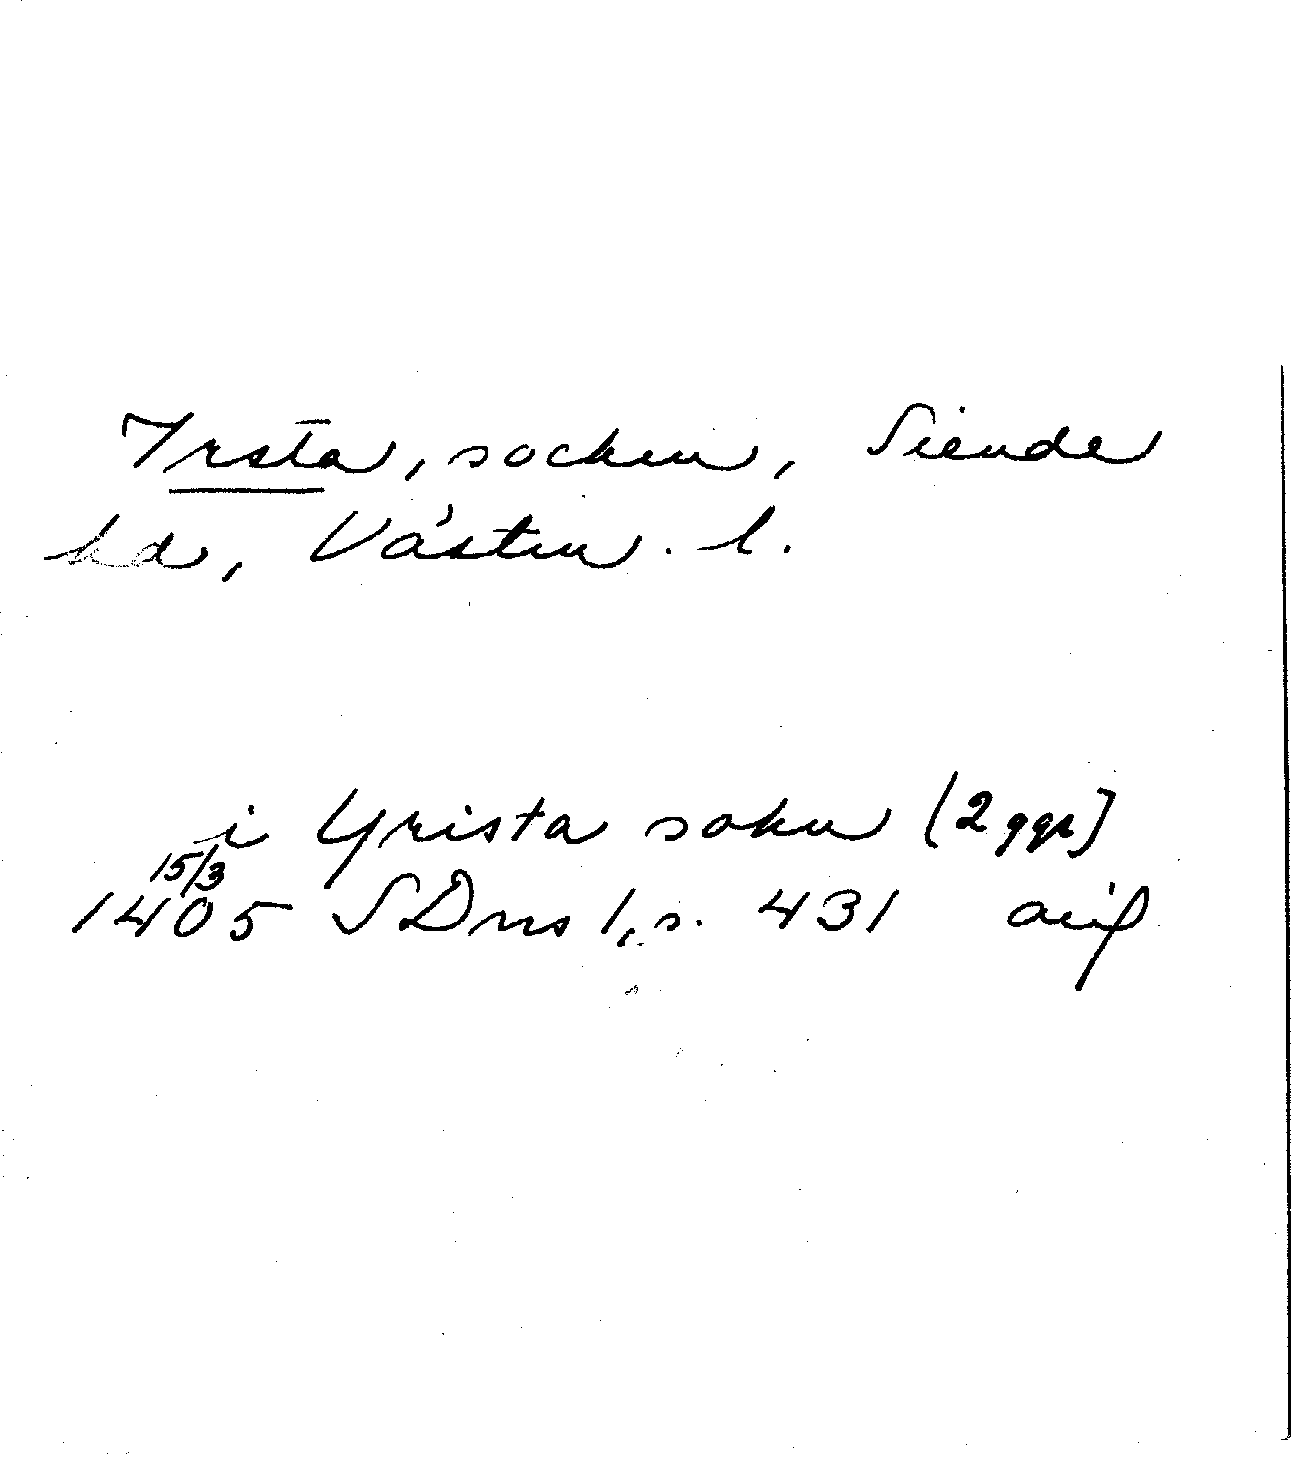 Irsta, socken, Siende
hd, Västm. l.
i Yrista sokn (2 ggr)
15/3
1405 SDns 1, s. 431 avsk